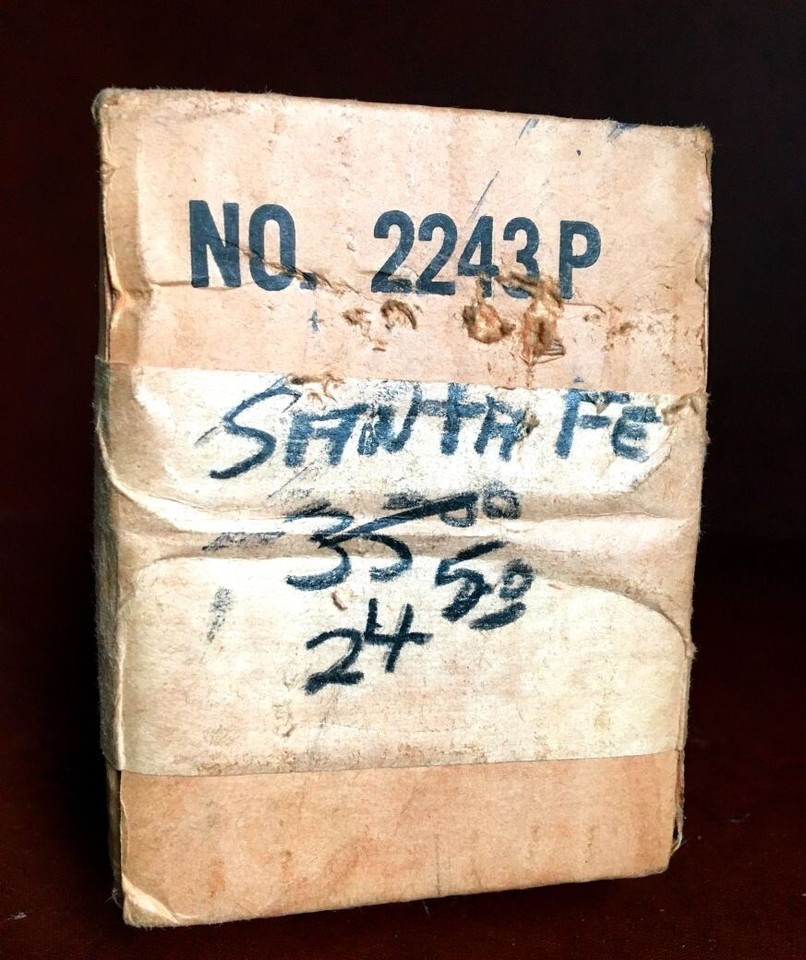 NO. 2243P
SANTA FE
35 00
24 50